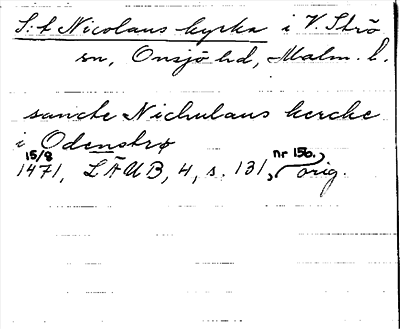 S:t Nicolaus kyrka i V. Strö
sn, Onsjö hd, Malm. l.
sancte Nichulaus kercke
i Odenstrø
15/8 1471, LÄUB, 4, s. 131, nr 156, orig.